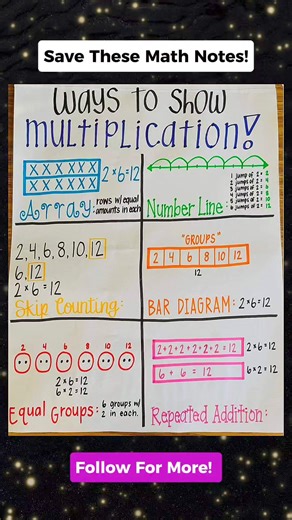 Save These Math Notes!
WAYS TO SHOW
MULTIPLICATION!
X X X X X X
X X X X X X
2×6=12
Array: rows w/ equal
amounts in each.
1 jump of 2 = 2
2 jumps of 2 = 4
3 jumps of 2 = 6
4 jumps of 2 = 8
5 jumps of 2 = 10
6 jumps of 2 = 12
Number Line:
2, 4, 6, 8, 10, 12
6, 12
2×6=12
Skip Counting:
"GROUPS"
2 4 6 8 10 12
12
BAR DIAGRAM: 2×6=12
2 4 6 8 10 12
2×6=12
6×2=12
Equal Groups: 6 groups w/
2 in each.
2+2+2+2+2+2=12 2×6=12
6 + 6 = 12 6×2=12
Repeated Addition:
Follow For More!